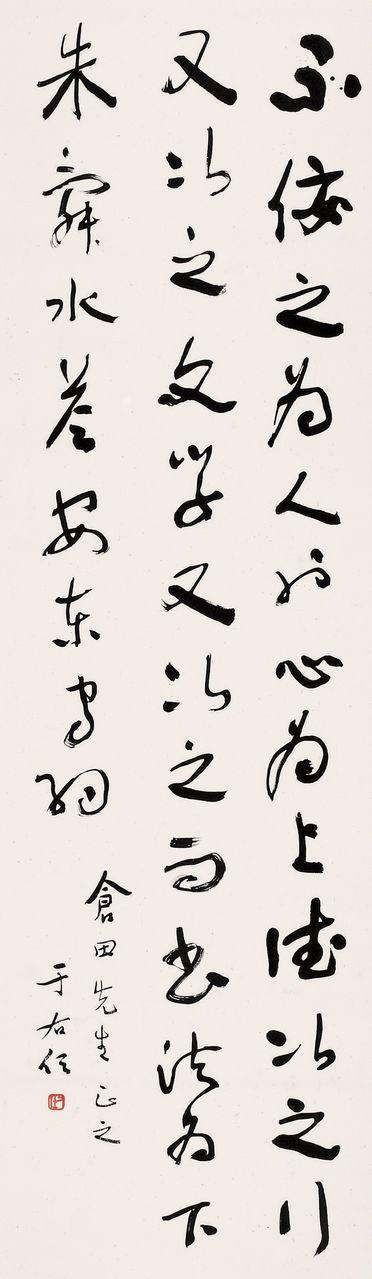 不佞之為人於心為上德次之行
又次之文學又次之而書法為下
朱舜水答安東守約
倉田先生正之
于右任